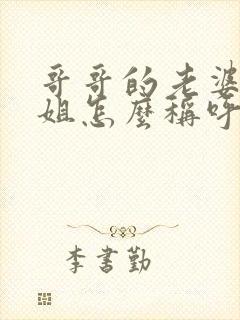 哥哥的老婆
姐怎麼稱呼
李書勤